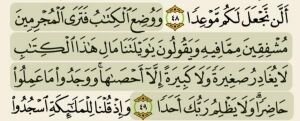 أَلَّن نَّجْعَلَ لَكُم مَّوْعِدًا ٤٨ وَوُضِعَ ٱلْكِتَٰبُ فَتَرَى ٱلْمُجْرِمِينَ
مُشْفِقِينَ مِمَّا فِيهِ وَيَقُولُونَ يَٰوَيْلَتَنَا مَالِ هَٰذَا ٱلْكِتَٰبِ
لَا يُغَادِرُ صَغِيرَةً وَلَا كَبِيرَةً إِلَّآ أَحْصَىٰهَا ۚ وَوَجَدُوا۟ مَا عَمِلُوا۟
حَاضِرًا ۗ وَلَا يَظْلِمُ رَبُّكَ أَحَدًا ٤٩ وَإِذْ قُلْنَا لِلْمَلَٰٓئِكَةِ ٱسْجُدُوا۟